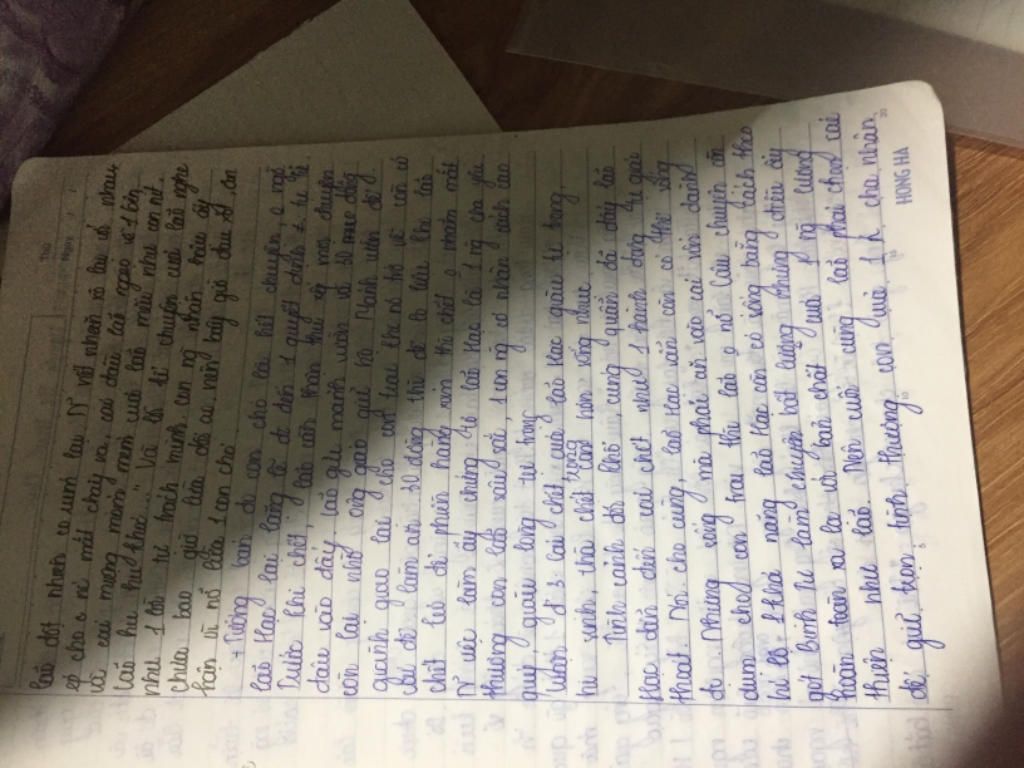 Thứ
Ngày
lão đột nhiên co rúm lại. N~ vết nhăn xô lại vs nhau,
ép cho n' nc mắt chảy ra, cái đầu lão ngoẹo về 1 bên
và cái miệng móm mém của lão mếu như con nít.
Lão hu hu khóc... Và lão
như 1 lời tự trách mình, con ng nhân hậu ấy
chưa bao giờ lừa dối ai, nên bây giờ day dứt ân
hận vì nỡ lừa 1 con chó
+ Tưởng bán đi con chó là hết chuyện, o ngờ
lão Hạc lại lặng lẽ đi đến 1 quyết định: tự tử.
Trước khi chết, lão cẩn thận thu xếp mọi chuyện
đâu vào đấy, lão gửi mảnh vườn và 30 đồng
còn lại nhờ ông giáo giữ hộ. Mảnh vườn để
quành giao lại cho con trai khi nó trở về còn có
cái để làm ăn, 30 đồng thì để lo liệu khi lão
chết, lão đỡ phiền hàng xóm khi chết o nhắm mắt
N~ việc làm ấy chứng tỏ lão Hạc là 1 ng cha yêu
thương con lão sâu sắc, 1 con ng có nhân cách cao
quý, giàu lòng tự trọng.
Luận đ 3: Cái chết của lão Hạc giàu tự trọng,
hi sinh, thà chết trong còn hơn sống nhục
Tình cảnh đói khổ, cùng quẫn đã đẩy lão
Hạc đến đến cái chết như 1 hành động tự giải
thoát. Nói cho cùng, lão Hạc vẫn còn có thể sống
đc. Nhưng sống mà phải ăn vào cái vốn dành
dụm cho con trai thì lão o nỡ. Câu chuyện còn
hé lộ 1 khả năng lão Hạc còn có sống bằng cách theo
gót Binh Tư làm chuyện bất lương nhưng điều ấy
hoàn toàn xa lạ vs bản chất của 1 ng lương
thiện như lão. Nên cuối cùng lão phải chọn cái
để giữ trọn tình thương con và 1 h cha nhân.
HONG HA